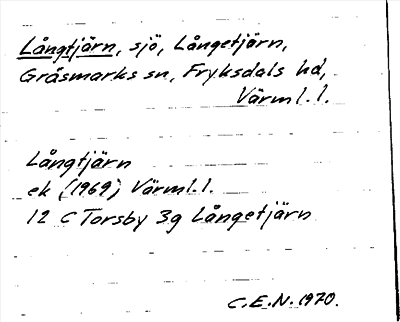 Långtjärn, sjö, Långetjärn,
Gräsmarks sn, Fryksdals hd,
Värml. l.
Långtjärn
ek (1969) Värml. l.
12 C Torsby 3g Långetjärn
C.E.N. 1970.